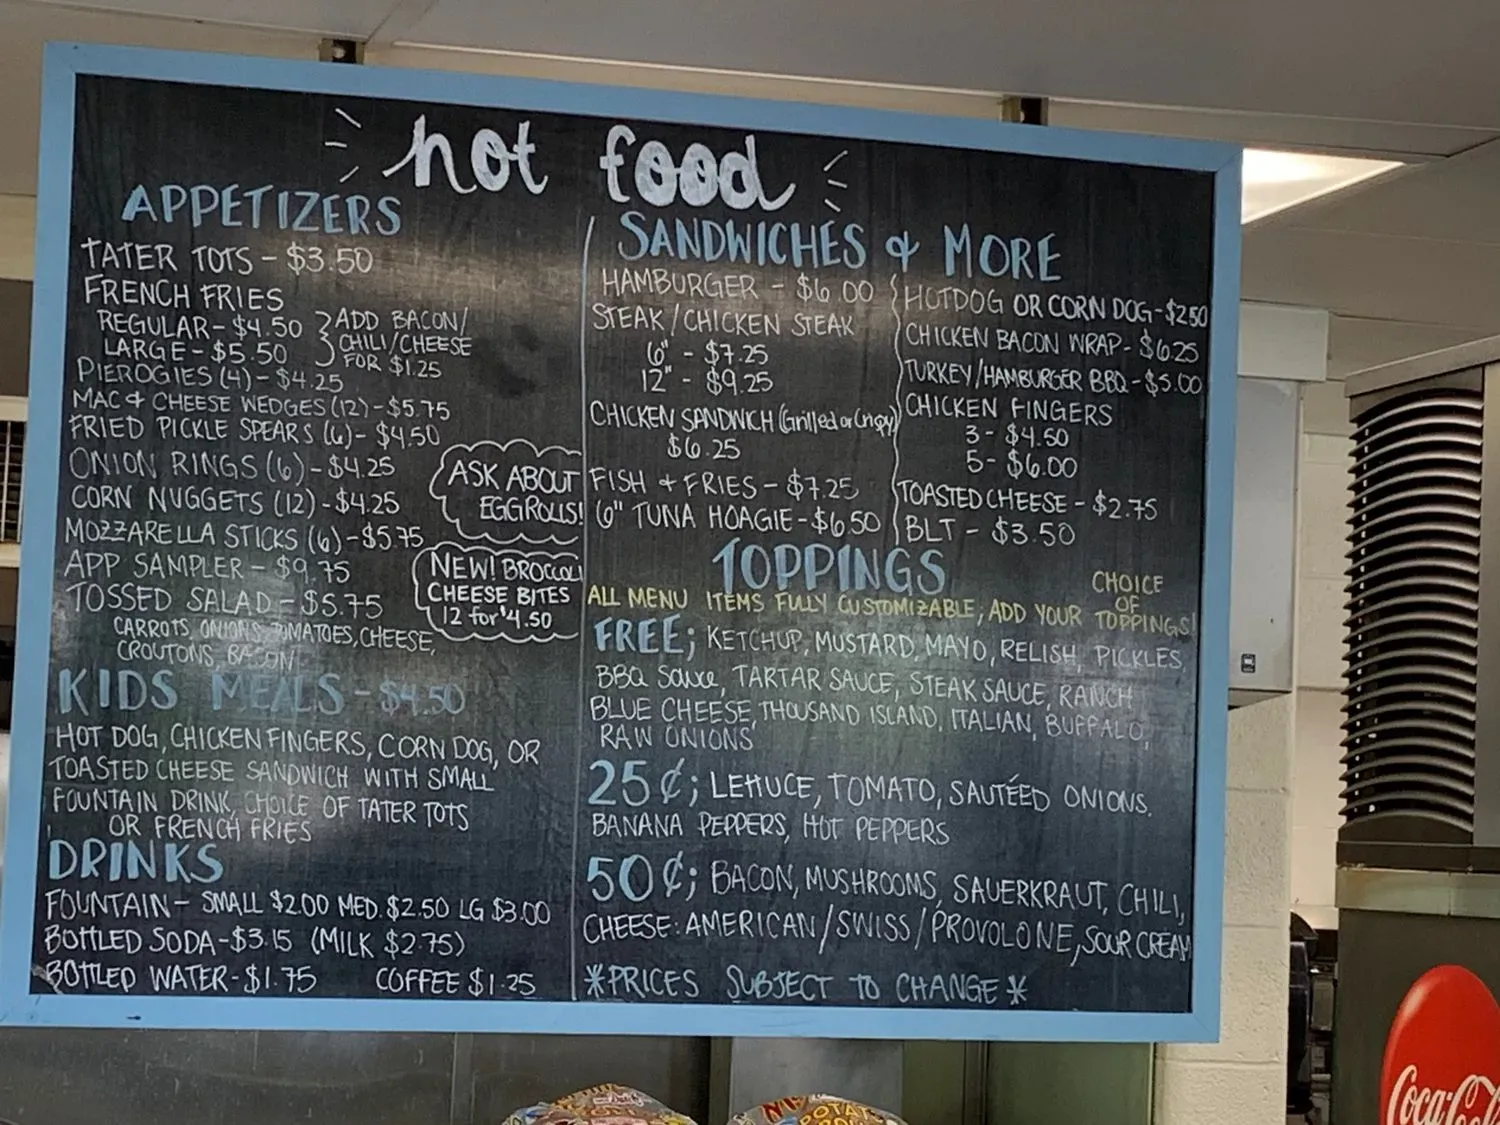 hot food
APPETIZERS
TATER TOTS - $3.50
FRENCH FRIES
REGULAR - $4.50
LARGE - $5.50
ADD BACON/
CHILI/CHEESE
FOR $1.25
PIEROGIES (4) - $4.25
MAC & CHEESE WEDGES (12) - $5.75
FRIED PICKLE SPEARS (6) - $4.50
ONION RINGS (6) - $4.25
CORN NUGGETS (12) - $4.25
MOZZARELLA STICKS (6) - $5.75
APP SAMPLER - $9.75
TOSSED SALAD - $5.75
CARROTS, ONIONS, TOMATOES, CHEESE,
CROUTONS, BACON
ASK ABOUT
EGGROLLS!
NEW! BROCCOLI
CHEESE BITES
12 for $4.50
KIDS MEALS - $4.50
HOT DOG, CHICKEN FINGERS, CORN DOG, OR
TOASTED CHEESE SANDWICH WITH SMALL
FOUNTAIN DRINK, CHOICE OF TATER TOTS
OR FRENCH FRIES
DRINKS
FOUNTAIN - SMALL $2.00 MED. $2.50 LG $3.00
BOTTLED SODA - $3.15 (MILK $2.75)
BOTTLED WATER - $1.75 COFFEE $1.25
SANDWICHES & MORE
HAMBURGER - $6.00
STEAK/CHICKEN STEAK
6" - $7.25
12" - $9.25
CHICKEN SANDWICH (Grilled or Crispy)
$6.25
FISH + FRIES - $7.25
6" TUNA HOAGIE - $6.50
HOTDOG OR CORN DOG - $2.50
CHICKEN BACON WRAP - $6.25
TURKEY/HAMBURGER BBQ - $5.00
CHICKEN FINGERS
3 - $4.50
5 - $6.00
TOASTED CHEESE - $2.75
BLT - $3.50
TOPPINGS
ALL MENU ITEMS FULLY CUSTOMIZABLE; ADD YOUR CHOICE OF TOPPINGS!
FREE; KETCHUP, MUSTARD, MAYO, RELISH, PICKLES,
BBQ SAUCE, TARTAR SAUCE, STEAK SAUCE, RANCH
BLUE CHEESE, THOUSAND ISLAND, ITALIAN, BUFFALO,
RAW ONIONS
25¢; LETTUCE, TOMATO, SAUTÉED ONIONS.
BANANA PEPPERS, HOT PEPPERS
50¢; BACON, MUSHROOMS, SAUERKRAUT, CHILI,
CHEESE: AMERICAN/SWISS/PROVOLONE, SOUR CREAM
*PRICES SUBJECT TO CHANGE*
Coca-Cola